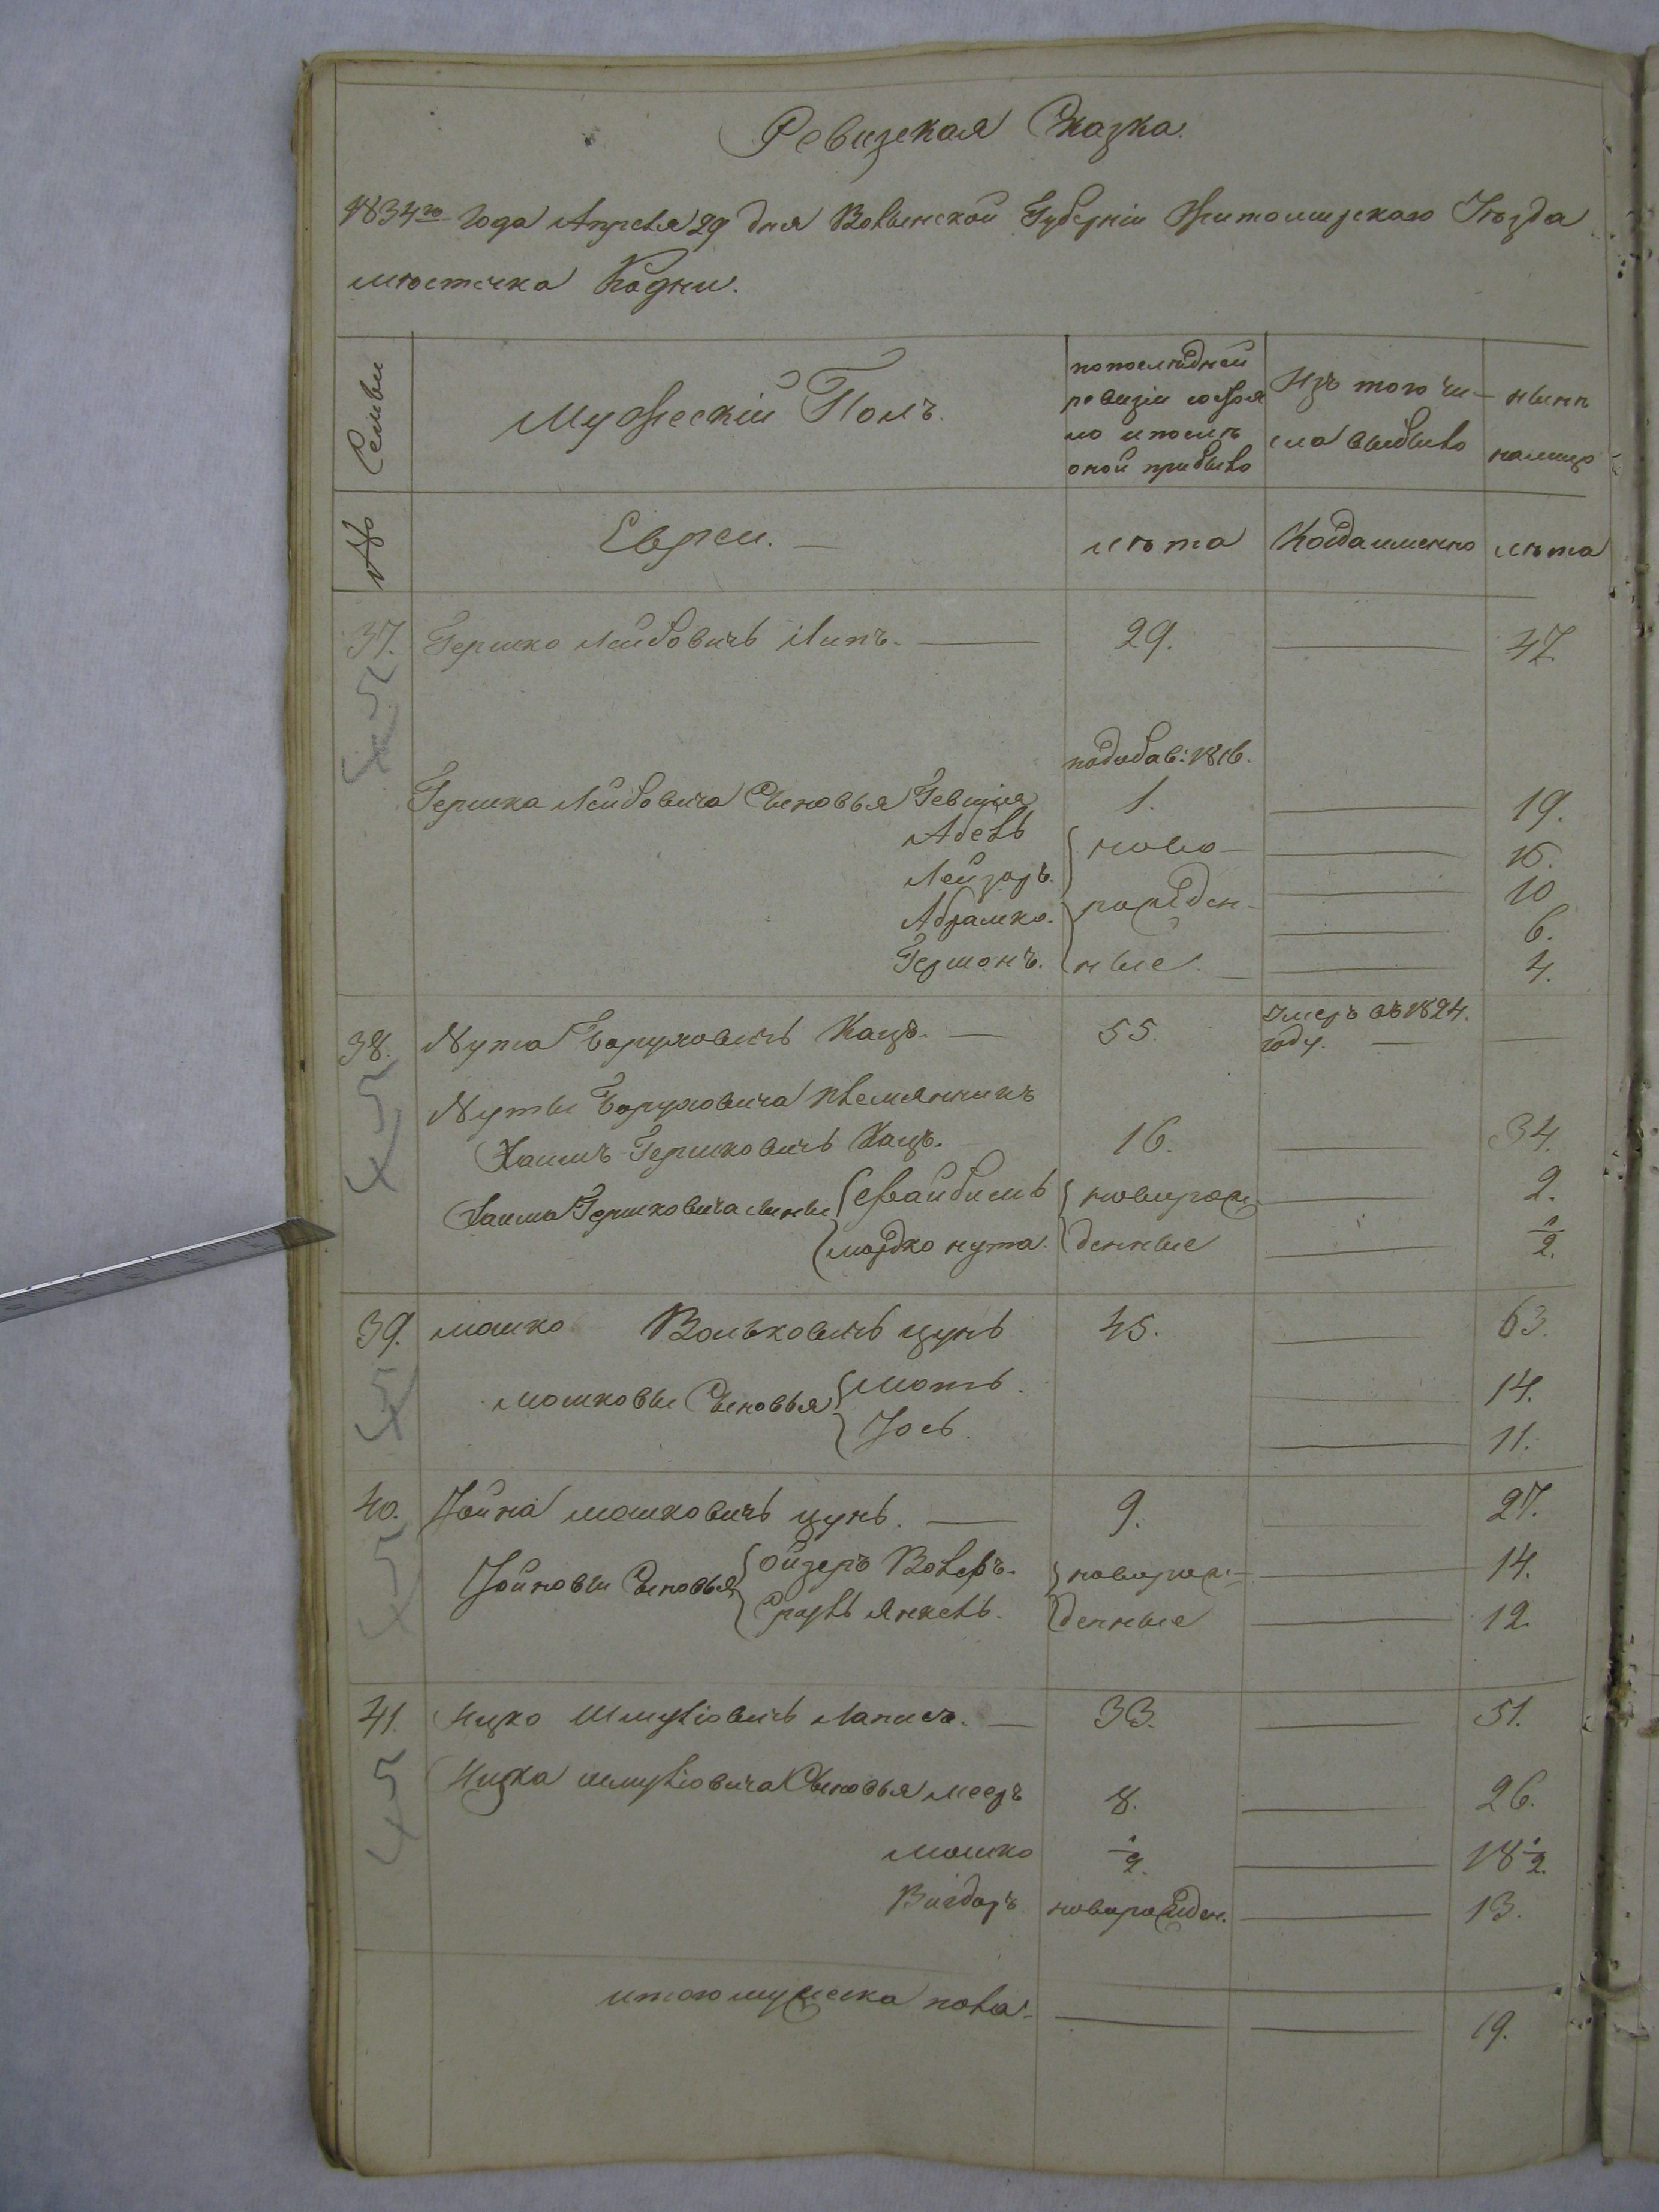 Ревизская Сказка.
1834го Года Апреля 29 дня Волынской Губерніи Житомирскаго Уѣзда
мѣстечка Кодни.
Семьи
Мужескій Полъ.
по последней ревизіи состояло и после оной прибыло
Изъ того числа выбыло
нынѣ налицо
№
Евреи. —
лѣта
Когда именно
лѣта
37. Гершко Лейбовичъ Липъ. — 29. — 47.
по добав: 1816.
Гершка Лейбовича Сыновья Гевшія 1. — 19.
Абель ново- — 16.
Лейзоръ. — 10
Абрамко. рожден- — 6.
Гершонъ. ные. — 4.
38. Нута Боруховичъ Кацъ. — 55. умеръ въ 1824. году. — —
Нуты Боруховича племянникъ
Хаимъ Гершковичъ Кацъ. 16. — 34.
Хаима Гершковича сыны Файбишъ новорож- — 2.
мордко нута. денные — ½.
39. мошко Волько­вичъ цунь 45. — 63.
мошковы Сыновья мотъ. — 14.
Іось. — 11.
40. Іойна мошковичъ цунь. — 9. — 27.
Іойновы Сыновья ойзеръ Волефъ. новорож- — 14.
Сруль Янкель. денные — 12.
41. Ицко Шмуліовичъ Лаписъ. — 33. — 51.
Ицка шмуліовича Сыновья мееръ 8. — 26.
мошко ½. — 18½.
Вигдоръ новорожден. — 13.
итого мужеска пола — — 19.